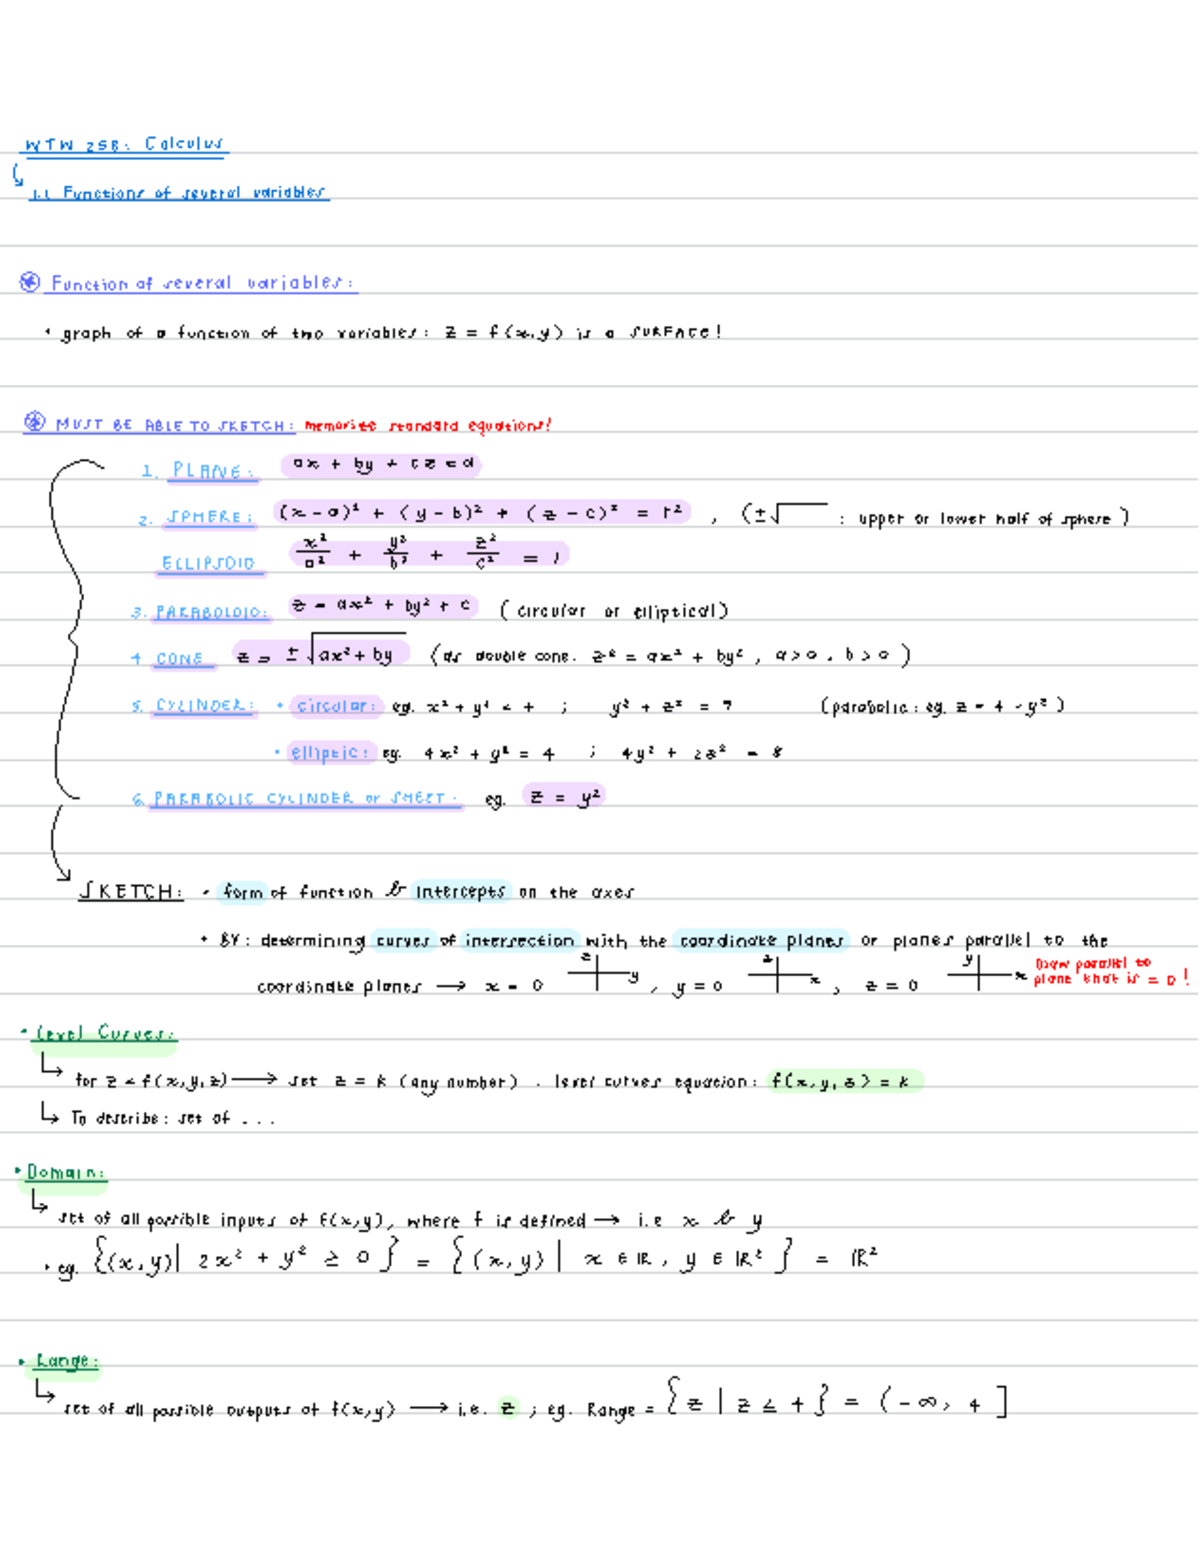 WTW 258: Calculus
1.1 Functions of several variables
Function of several variables:
• graph of a function of two variables: z = f(x,y) is a SURFACE!
MUST BE ABLE TO SKETCH: memorise standard equations!
1. PLANE: ax + by + cz = d
2. SPHERE: (x - a)² + (y - b)² + (z - c)² = r² , (±√ : upper or lower half of sphere)
ELLIPSOID x²/a² + y²/b² + z²/c² = 1
3. PARABOLOID: z = ax² + by² + c (circular or elliptical)
4 CONE z = ±√ax² + by (as double cone. z² = ax² + by², a>0, b>0)
5. CYLINDER: • circular: eg. x² + y² = 4 ; y² + z² = 7 (parabolic: eg. z = 4 - y²)
• elliptic: eg. 4x² + y² = 4 ; 4y² + 2z² = 8
6. PARABOLIC CYLINDER or SHEET: eg. z = y²
SKETCH: • form of function & intercepts on the axes
• BY: determining curves of intersection with the coordinate planes or planes parallel to the
coordinate planes → x = 0 z y , y = 0 z x , z = 0 y x Draw parallel to plane that is = 0!
• Level Curves:
↳ for z = f(x,y,z) → set z = k (any number). level curves equation: f(x,y,z) = k
↳ To describe: set of ...
• Domain:
↳ set of all possible inputs of f(x,y), where f is defined → i.e x & y
• eg. {(x,y)| 2x² + y² ≥ 0} = {(x,y)| x ∈ ℝ, y ∈ ℝ²} = ℝ²
• Range:
↳ set of all possible outputs of f(x,y) → i.e. z ; eg. Range = {z | z ≤ 4} = (-∞, 4]